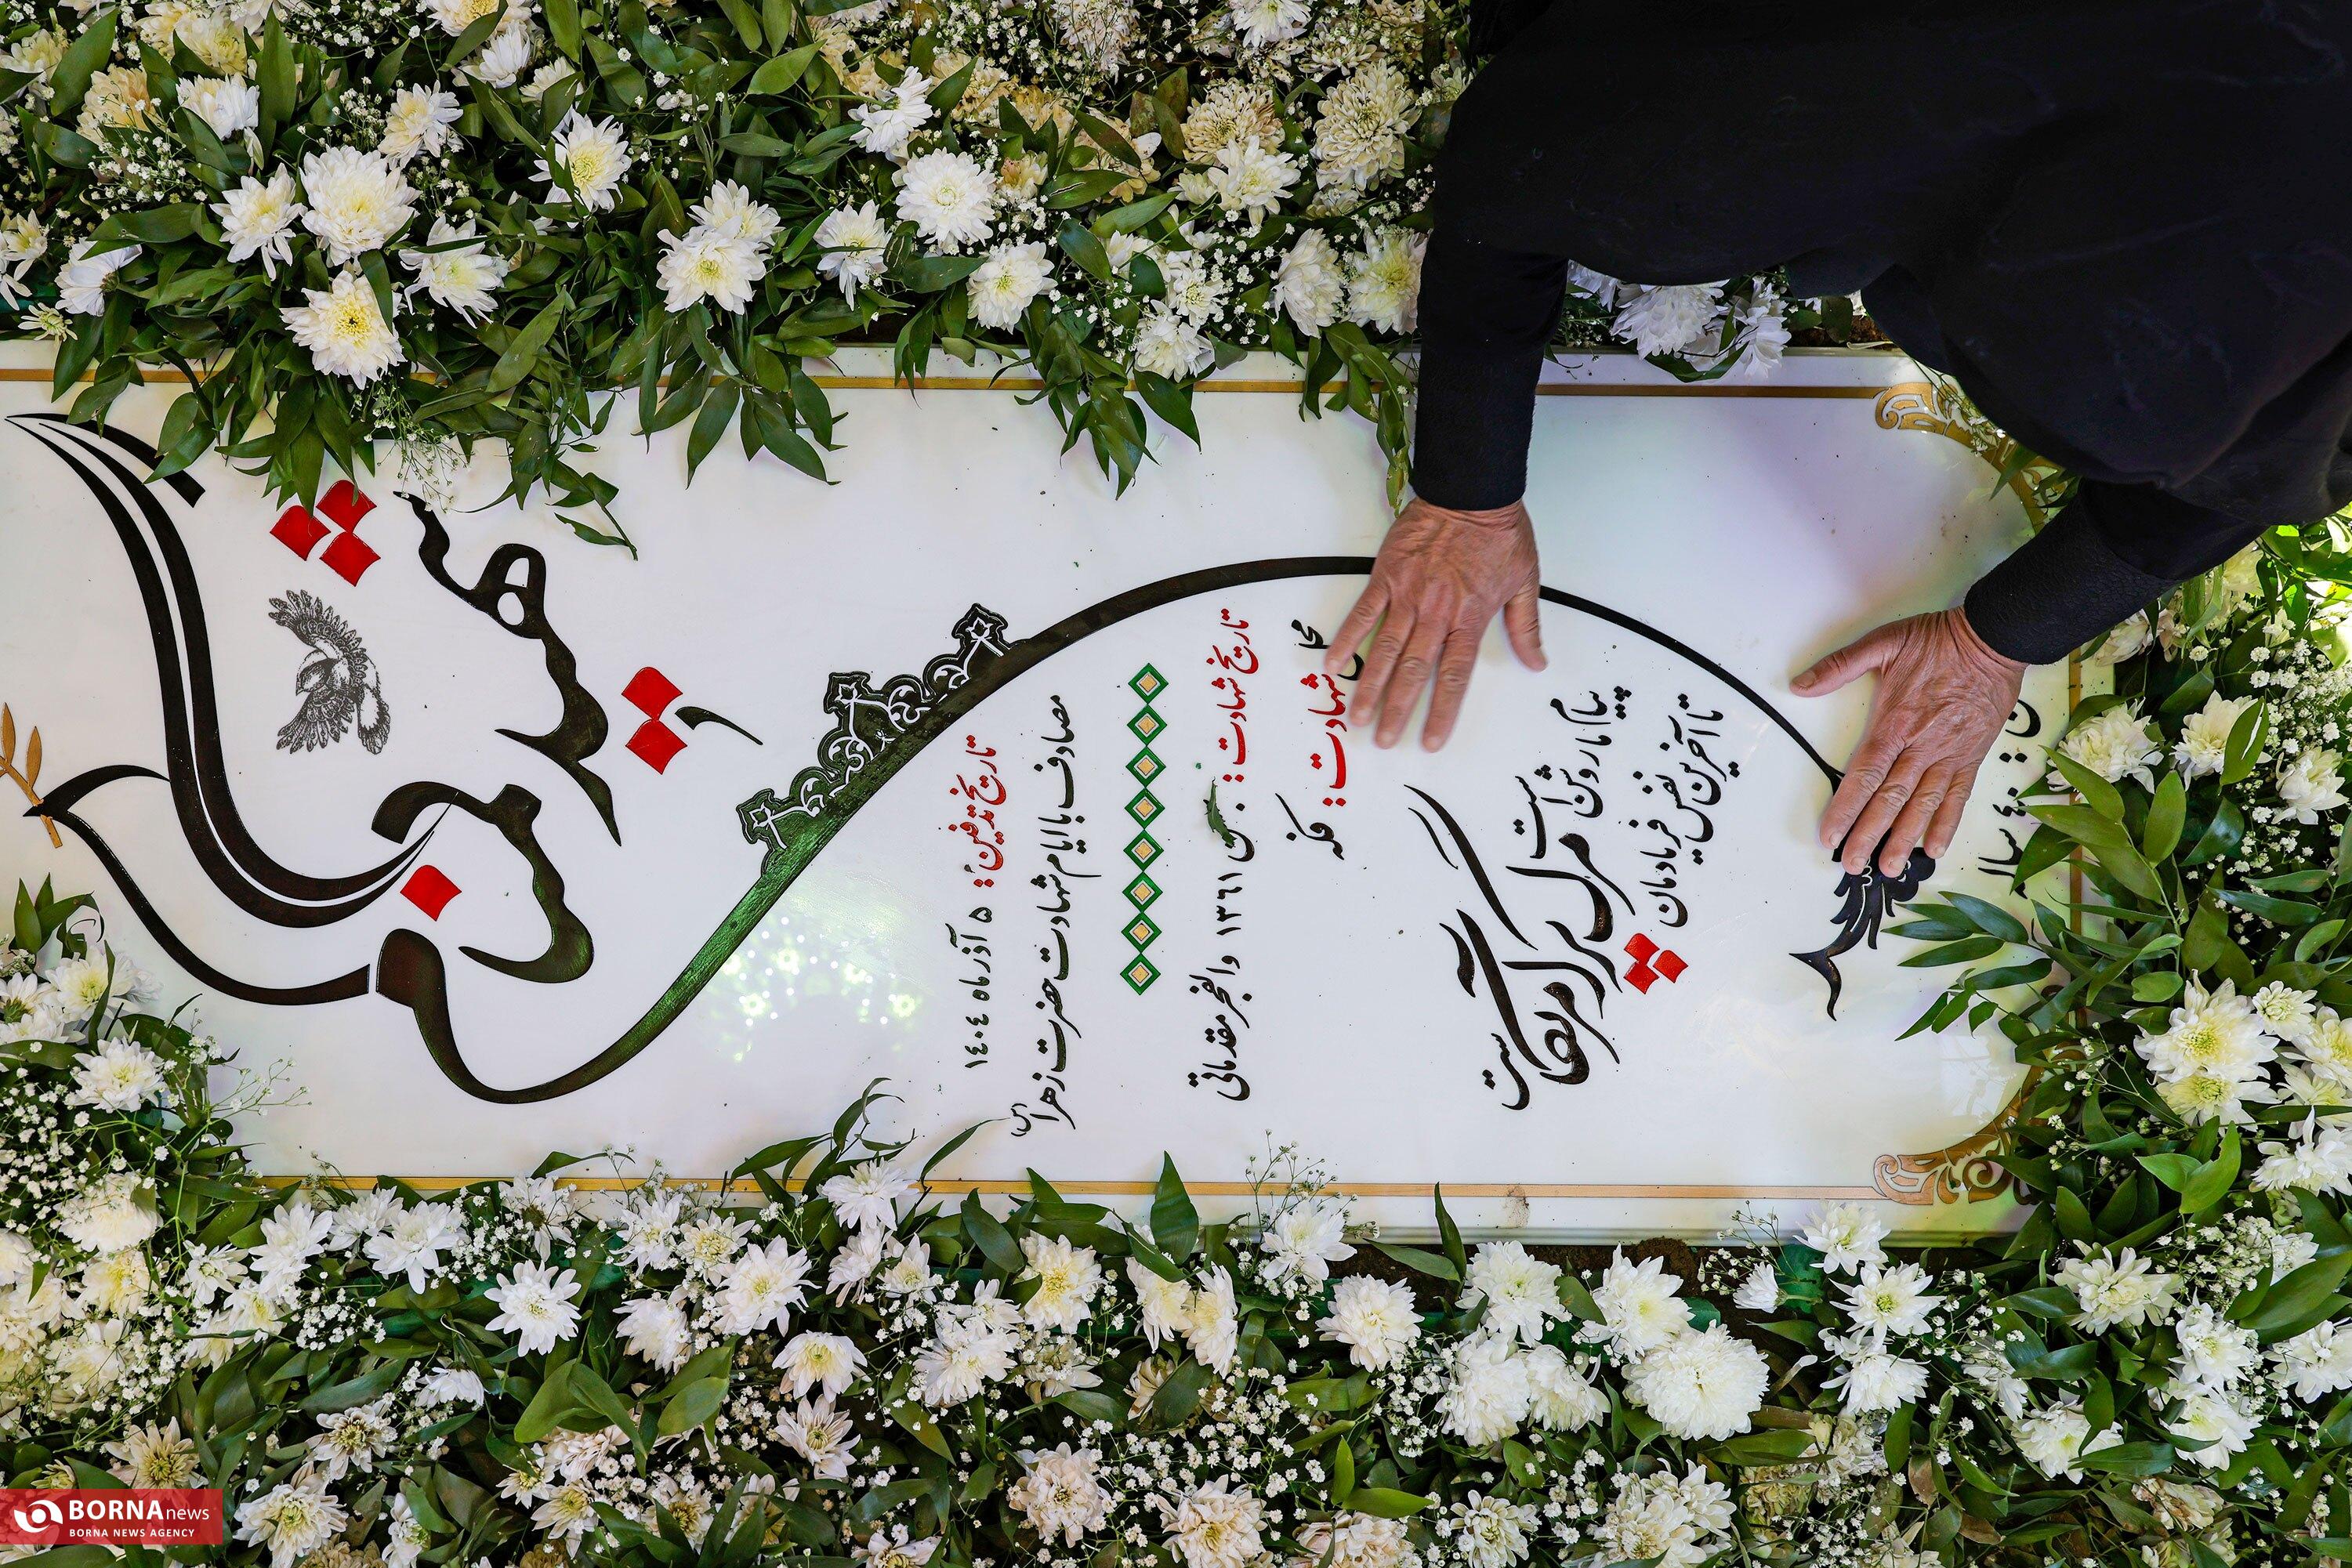 شهید گمنام
تاریخ تدفین : ۵ آذر ماه ۱۴۰۴
مصادف با ایام شهادت حضرت زهرا (س)
تاریخ شهادت : بهمن ۱۳۶۱ والفجر مقدماتی
محل شهادت : فکه
پیام ما روشن است
تا آخرین نفس فریادمان
مرگ بر آمریکاست
۴۰ سال
BORNA news
BORNA NEWS AGENCY